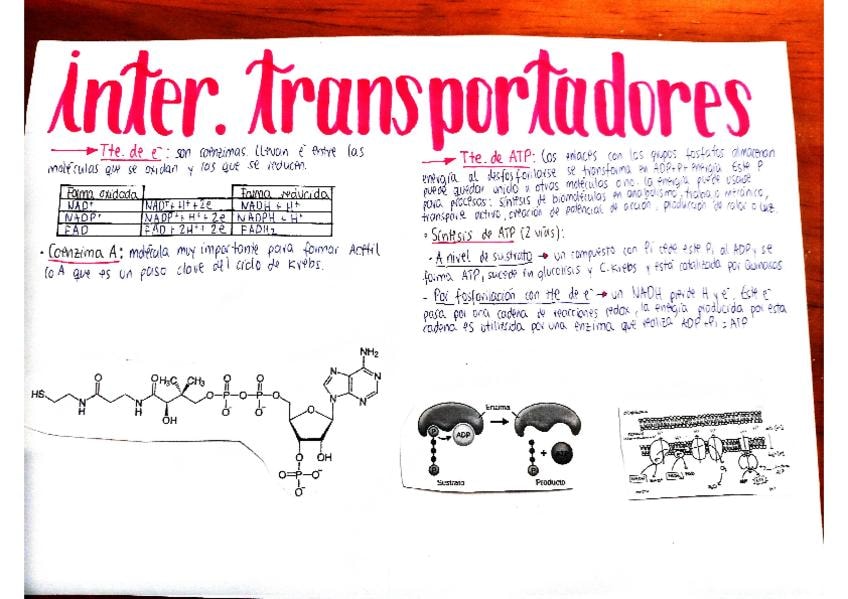 inter. transportadores
Tte. de e⁻: son coenzimas. Llevan e⁻ entre las
moléculas que se oxidan y las que se reducen.
Forma oxidada Forma reducida
NAD⁺ NAD⁺+H⁺+2e⁻ NADH + H⁺
NADP⁺ NADP⁺+H⁺+2e⁻ NADPH + H⁺
FAD FAD+2H⁺+2e⁻ FADH₂
· Coenzima A: molécula muy importante para formar Acetil
CoA que es un paso clave del ciclo de Krebs.
HS N H O N H O H₃C CH₃ OH O P O O⁻ O P O O⁻ O NH₂ N N N N O OH O O P O⁻ O⁻
Tte. de ATP: Los enlaces con los grupos fosfatos almacenan
energía al desfosforilarse se transforma en ADP+Pi+energía. Este P
puede quedar unido a otras moléculas o no. la energía puede usarse
para procesos: síntesis de biomoléculas en anabolismo, trabajo mecánico,
transporte activo, creación de potencial de acción, producción de calor o luz.
· Síntesis de ATP (2 vías):
- A nivel de sustrato → un compuesto con Pi cede este Pi al ADP, se
forma ATP, sucede en glucolisis y C.Krebs y está catalizada por quinasas.
- Por fosforilación con tte de e⁻ → un NADH pierde H y e⁻. Este e⁻
pasa por una cadena de reacciones redox, la energía producida por esta
cadena es utilizada por una enzima que realiza ADP+Pi = ATP
Enzima
P ADP
P
P + ATP
P
Sustrato Producto